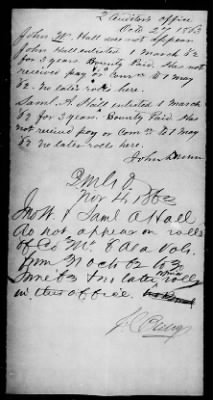 2 Auditor's office
Oct 27 1863
John W. Hall does not appear.
John Hall enlisted 1 March 62
for 3 years. Bounty Paid. Has not
received pay or Com. to 1 may
62. no later rolls here.
Saml. A. Hall enlisted 1 march
62 for 3 years. Bounty Paid. Has
not recived pay or Com to 1 may
62 no later rolls here.
John
Nov 4, 1863
Jno W. & Saml A Hall
do not appear on rolls
of Co Ala Vols.
from to
June 63 & no later rolls
in this office.